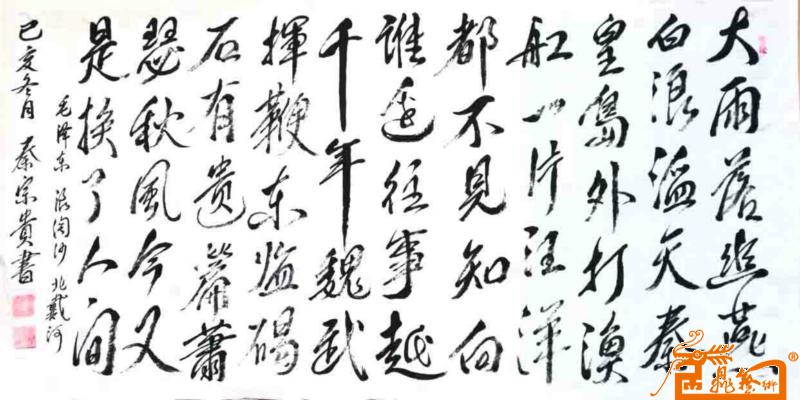 大雨落幽燕
白浪滔天秦
皇島外打漁
船一片汪洋
都不見知向
誰邊往事越
千年魏武
揮鞭东临碣
石有遗篇蕭
瑟秋風今又
是换了人间
毛泽东 浪淘沙 北戴河
己亥冬月 秦宗貴書